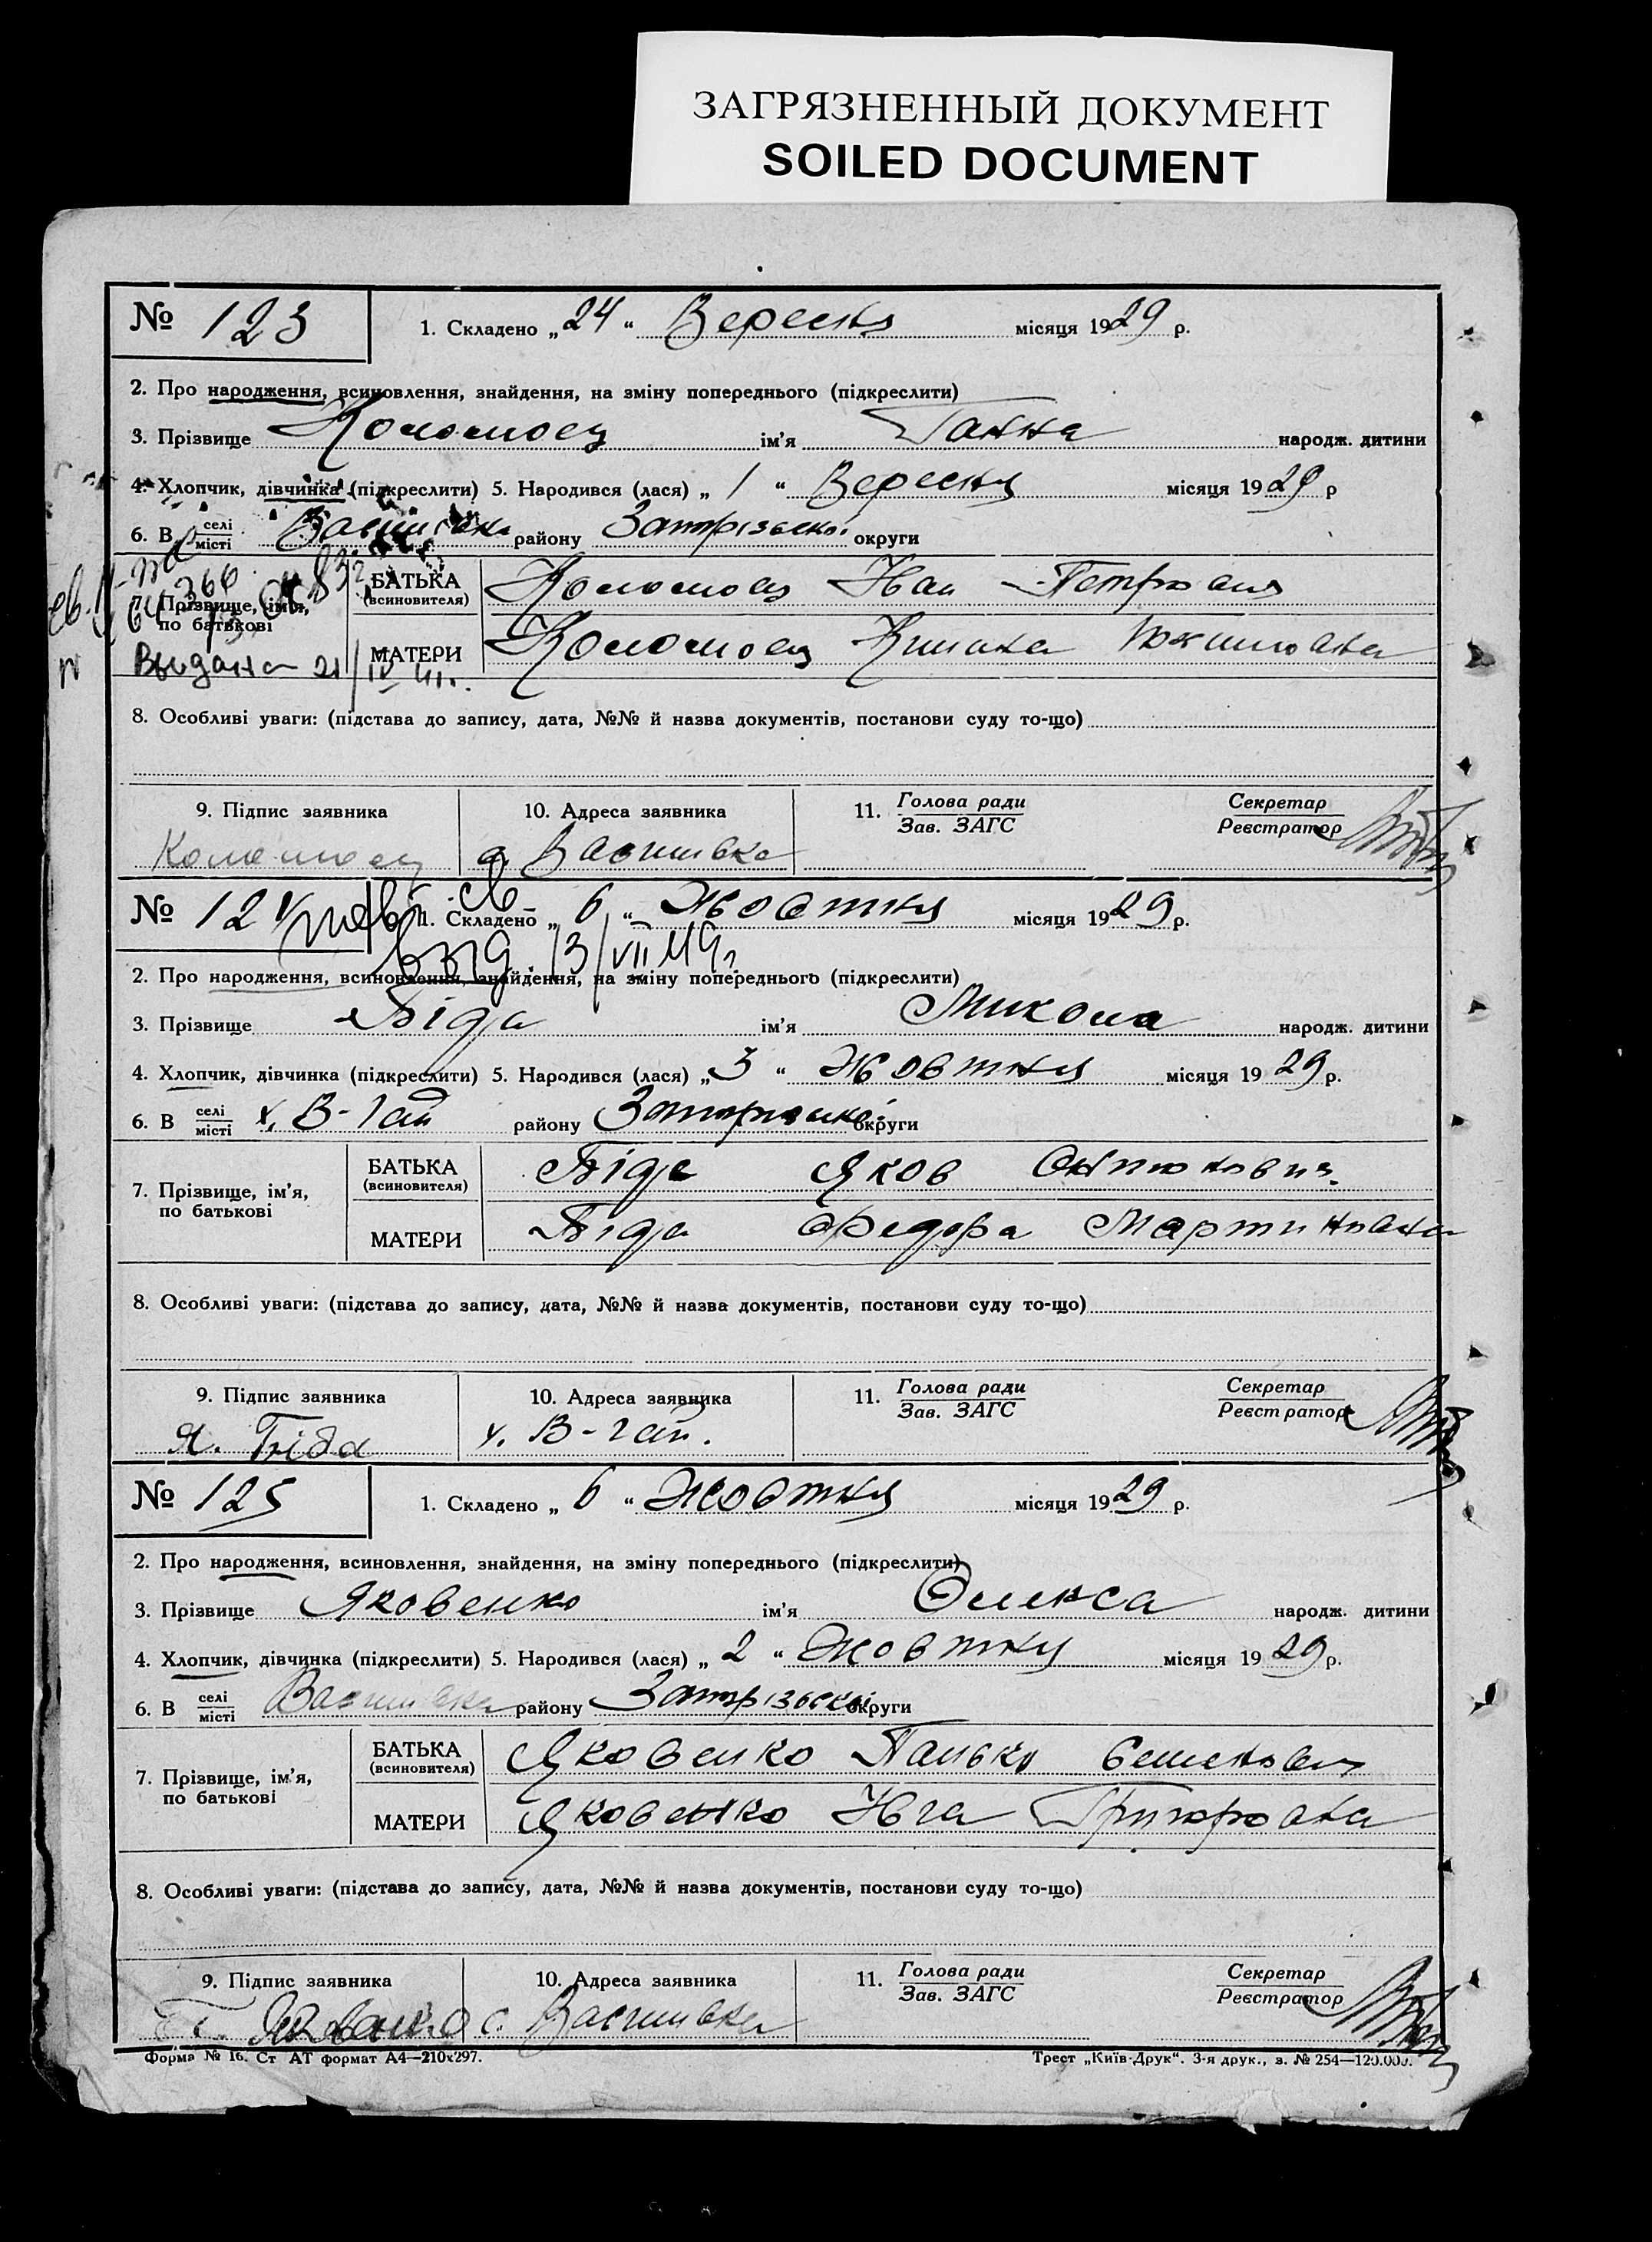 ЗАГРЯЗНЕННЫЙ ДОКУМЕНТ
SOILED DOCUMENT
№ 123 1. Складено „24“ Вересня місяця 1929 р.
2. Про народження, всиновлення, знайдення, на зміну попереднього (підкреслити)
3. Прізвище Коломоец ім'я Ганна народж. дитини
4. Хлопчик, дівчинка (підкреслити) 5. Народився (лася) „ 1 “ Вересня місяця 1929 р
6. В селі місті району округи
7. Прізвище, ім'я, по батькові
БАТЬКА (всиновителя) Коломоец Иван Петрович
МАТЕРИ Коломоец
Выдана 21/IV
8. Особливі уваги: (підстава до запису, дата, №№ й назва документів, постанови суду то-що)
9. Підпис заявника 10. Адреса заявника 11. Голова ради Зав. ЗАГС Секретар Реєстратор
Коломоец с. Василивка
№ 124 1. Складено „ 6 “ Жовтня місяця 1929 р.
13/VII 49г.
2. Про народження, всиновлення, знайдення, на зміну попереднього (підкреслити)
3. Прізвище Біда ім'я Микола народж. дитини
4. Хлопчик, дівчинка (підкреслити) 5. Народився (лася) „3 “ Жовтня місяця 1929 р.
6. В селі місті х. В-Гай району округи
7. Прізвище, ім'я, по батькові
БАТЬКА (всиновителя) Біда Яков Антонович
МАТЕРИ Біда Федора Мартиновна
8. Особливі уваги: (підстава до запису, дата, №№ й назва документів, постанови суду то-що)
9. Підпис заявника 10. Адреса заявника 11. Голова ради Зав. ЗАГС Секретар Реєстратор
Я. Біда х. В-Гай.
№ 125 1. Складено „ 6 “ Жовтня місяця 1929 р.
2. Про народження, всиновлення, знайдення, на зміну попереднього (підкреслити)
3. Прізвище Яковенко ім'я Олекса народж. дитини
4. Хлопчик, дівчинка (підкреслити) 5. Народився (лася) „ 2 “ Жовтня місяця 1929 р.
6. В селі місті Василивка району округи
7. Прізвище, ім'я, по батькові
БАТЬКА (всиновителя) Яковенко Панько Семенович
МАТЕРИ Яковенко Ивга Григоровна
8. Особливі уваги: (підстава до запису, дата, №№ й назва документів, постанови суду то-що)
9. Підпис заявника 10. Адреса заявника 11. Голова ради Зав. ЗАГС Секретар Реєстратор
с. Василивка
Форма № 16. Ст АТ формат А4—210x297. Трест „Київ-Друк“. 3-я друк., з. № 254—120.000.